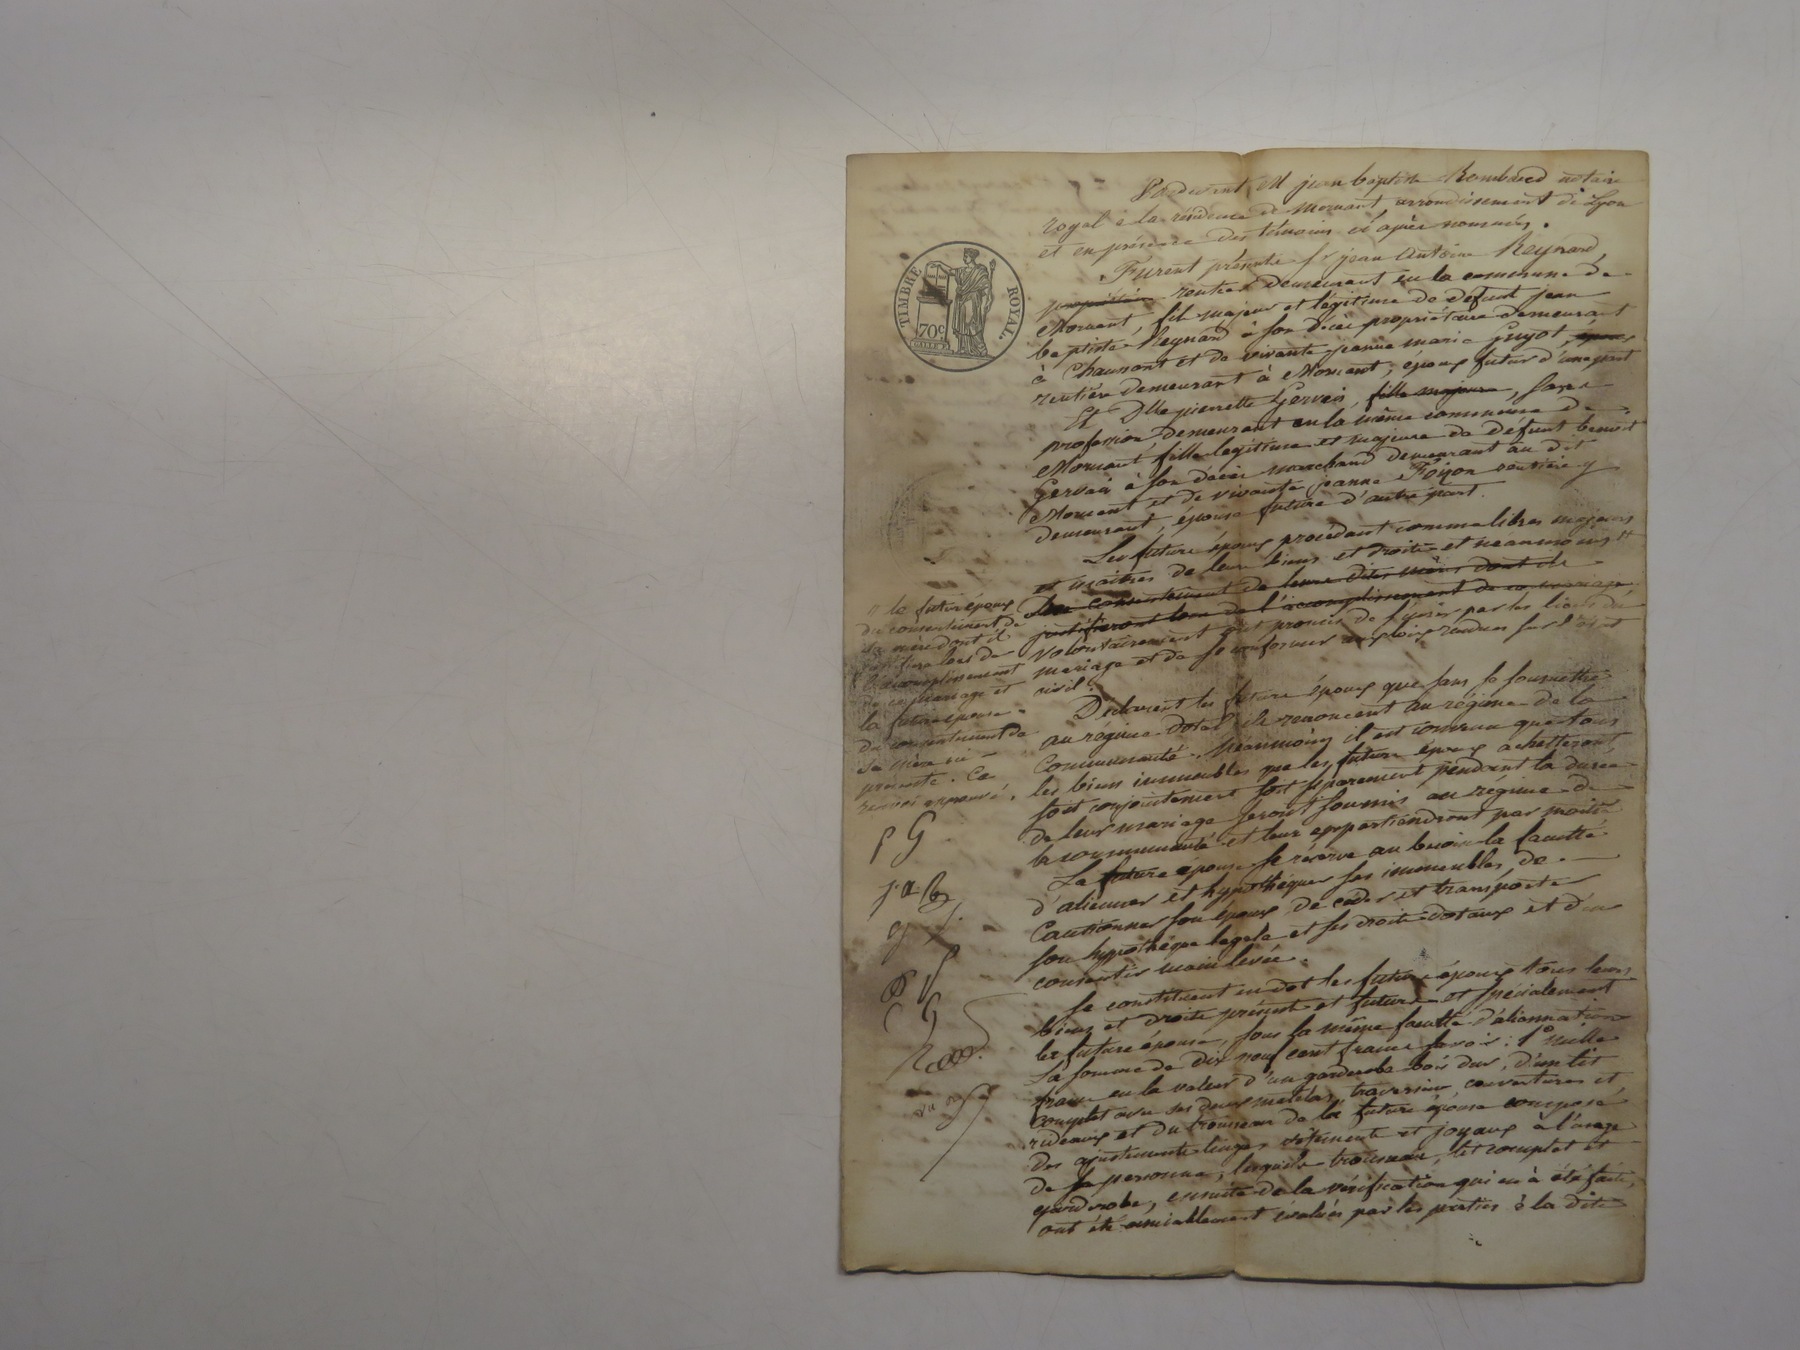 Pardevant M jean baptiste Rombaud notaire
royal à la résidence de Mornant arrondissement de Lyon
et en présence des témoins ci après nommés.
Furent présents Sr jean Antoine Reynard,
propriétaire rentier demeurant en la commune de
Mornant, fils majeur et légitime de défunt jean
baptiste Reynard à son décès propriétaire demeurant
à Chaussant et de vivante jeanne marie Guyot, épouse
rentière demeurant à Mornant, époux futur d'une part
Et Dlle pierrette Gervais, fille majeure, sans
profession, demeurant en la même commune de
Mornant fille légitime et majeure de défunt benoit
Gervais à son décès marchand demeurant au dit
Mornant et de vivante jeanne rentière y
demeurant, épouse future d'autre part.
Les futurs époux procédant comme libres majeurs
et maitres de leurs biens et droits et neanmoins
du consentement de leurs dites mères dont ils
justifieront lors de l'accomplissement de ce mariage
volontairement ont promis de s'unir par les liens du
mariage et de se conformer aux lois rendues sur l'état
civil.
Déclarent les futurs époux que sans se soumettre
au régime dotal ils renoncent au régime de la
Communauté. Néanmoins il est convenu que tous
les biens immeubles que les futurs époux achetteront
soit conjointement soit séparement pendant la durée
de leur mariage seront soumis au régime de
la communauté et leur appartiendront par moitié
La future épouse se réserve au besoin la faculté
d'aliener et hypothéquer ses immeubles de
Cautionner son époux de céder et transporter
son hypothèque legale et ses droits dotaux et d'en
consentir main levée.
Se constituent en dot les futurs époux tous leurs
biens et droits présents et futurs et spécialement
la future épouse, sous la même faculté d'alienation
La somme de dix neuf cent francs savoir: 1° mille
francs en la valeur d'un garderobe bois dur, d'un lit
complet avec ses deux matelas, traversin couvertures et
rideaux et du trousseau de la future épouse composé
des ajustements linges vêtements et joyaux à l'usage
de sa personne, lesquels trousseau, lit complet et
garderobe, ensuite de la vérification qui en à été faite,
ont été amiablement évalués par les parties à la dite
TIMBRE ROYAL.
70c
le futur époux
du consentement de
sa mère dont il
justifiera lors de
l'accomplissement
de ce mariage et
la future épouse
du consentement de
sa mère ici
présente. Ce
renvoi approuvé.
p G
j.a.R